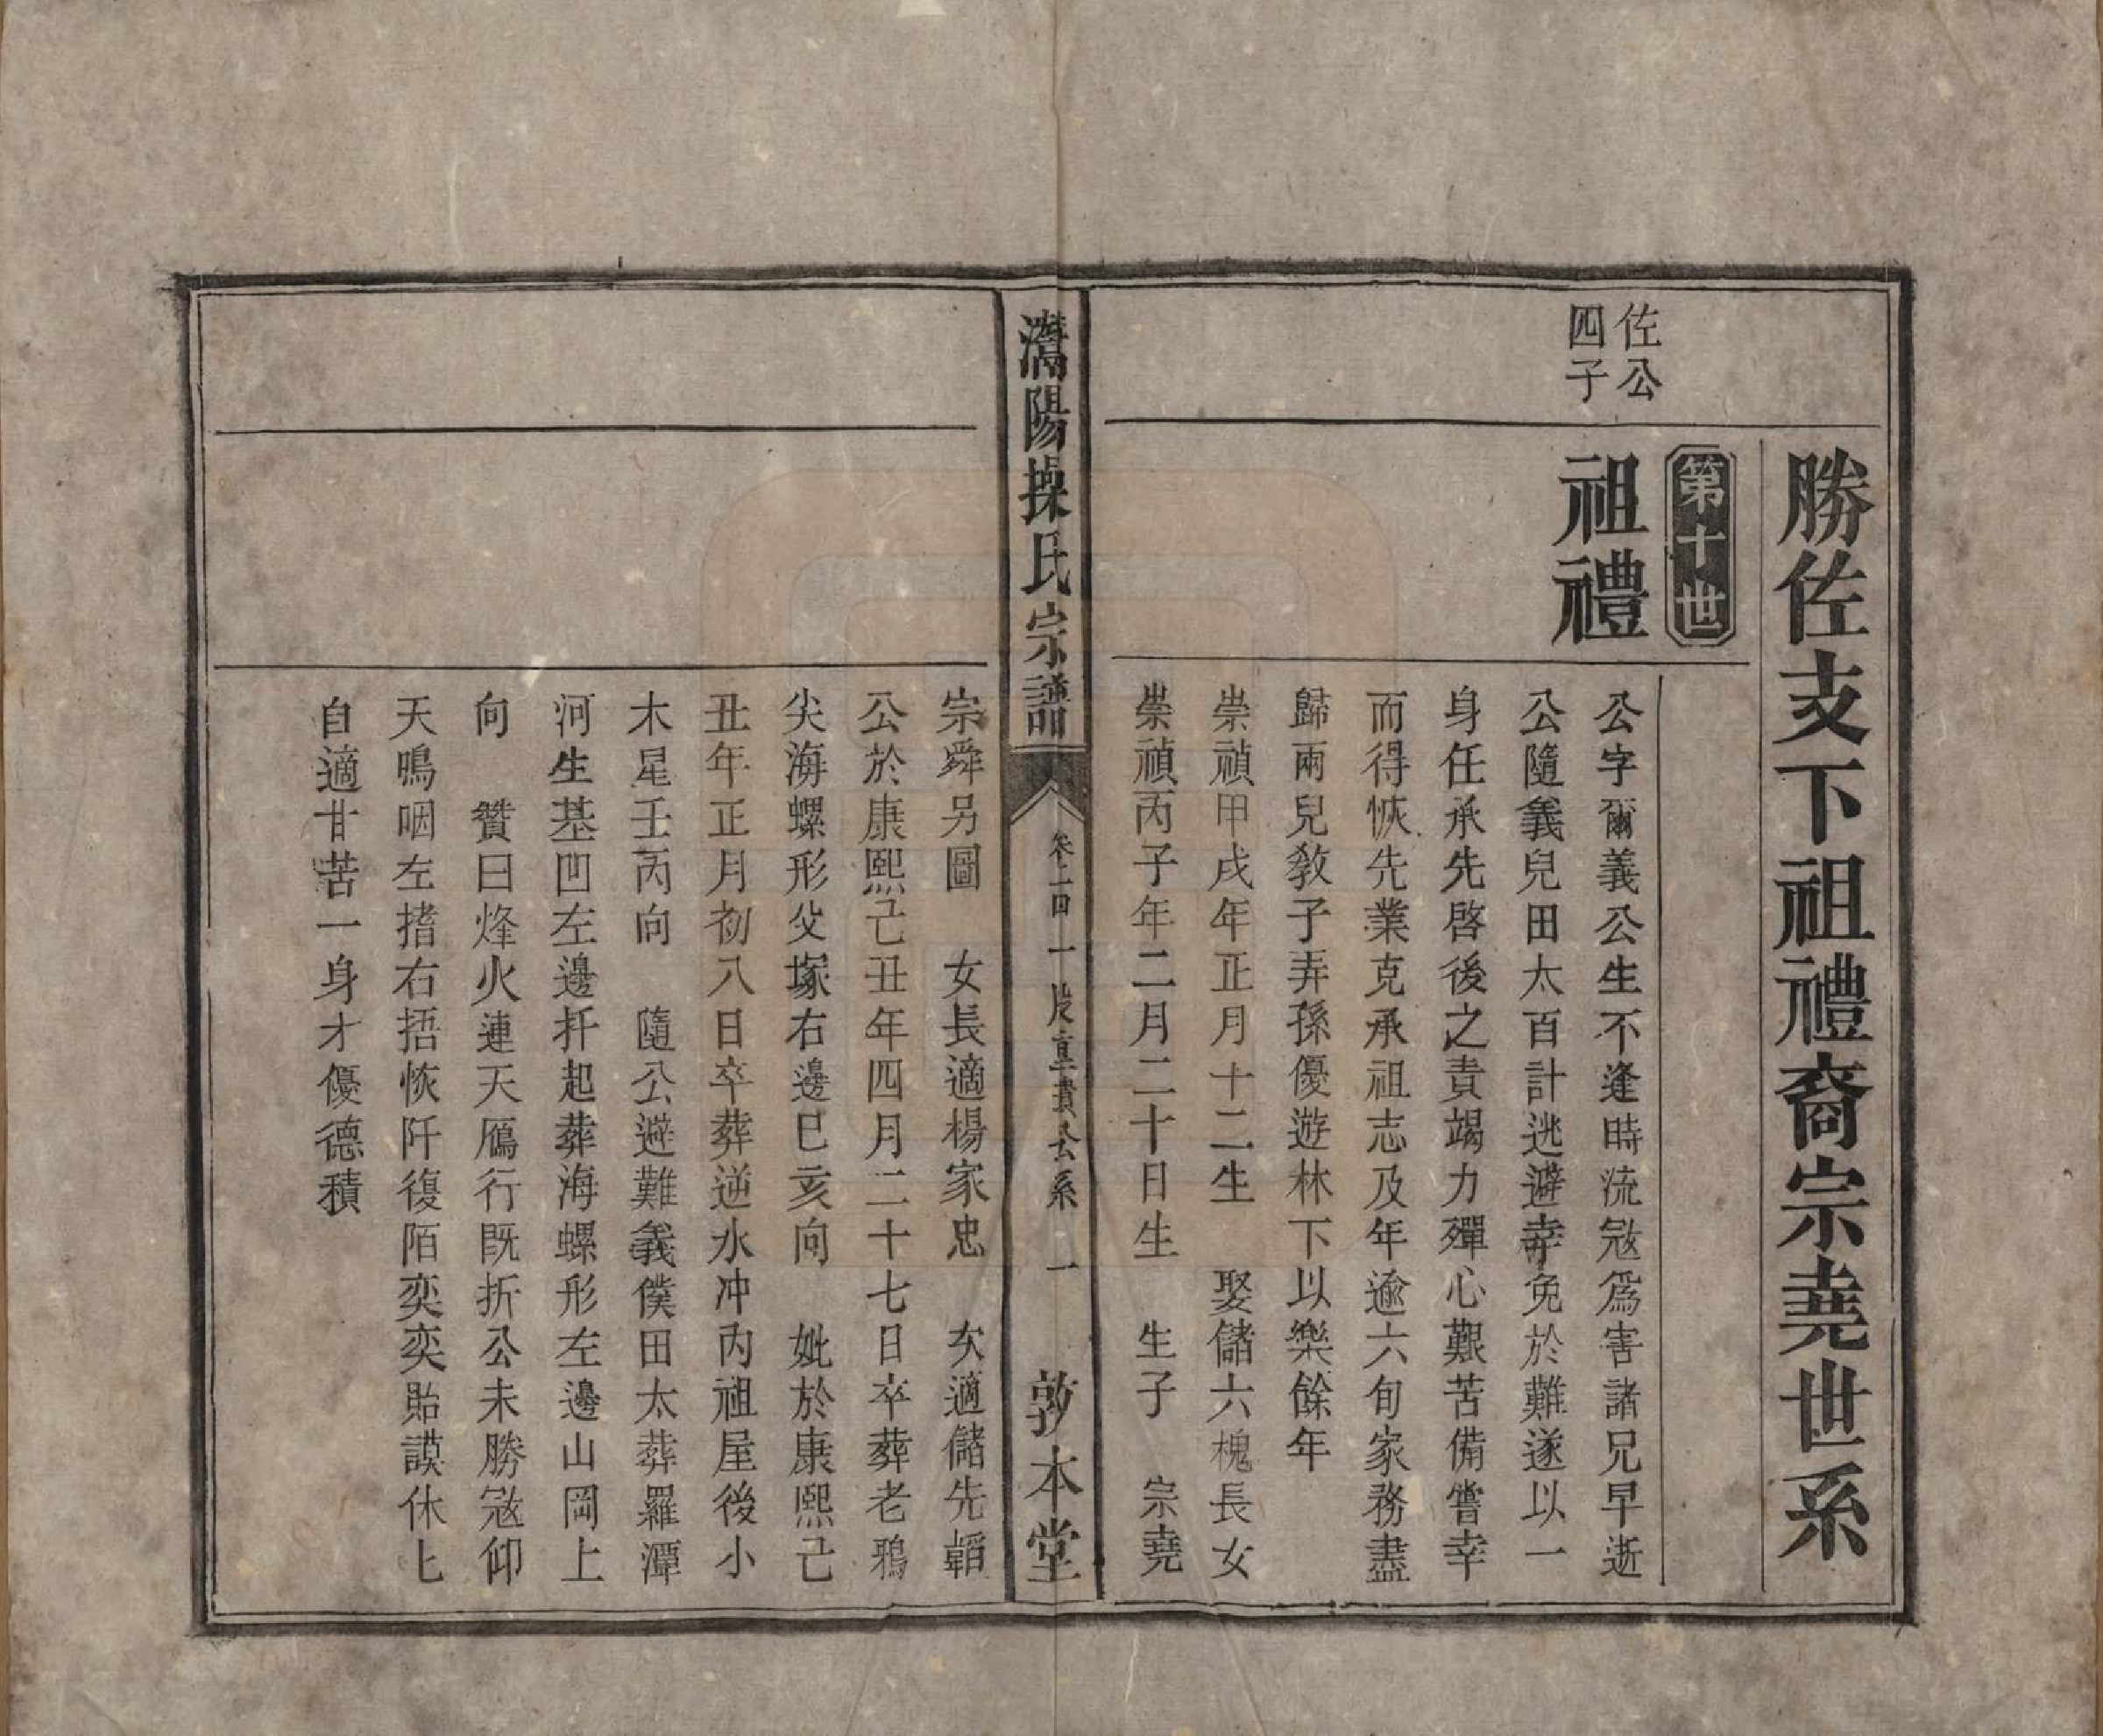 勝佐支下祖禮裔宗堯世系
第十世
佐公
四子
祖禮
公字爾義公生不逢時流冦為害諸兄早逝
公隨義兒田太百計逃避幸免於難遂以一
身任承先啓後之責竭力殫心艱苦備嘗幸
而得恢先業克承祖志及年逾六旬家務盡
歸兩兒教子弄孫優遊林下以樂餘年
崇禎甲戌年正月十二生 娶儲六槐長女
崇禎丙子年二月二十日生 生子 宗堯
灊陽操氏宗譜
卷二四 一股真貴公系 一
敦本堂
宗舜另圖 女長適楊家忠 次適儲先韜
公於康熙己丑年四月二十七日卒葬老鴉
尖海螺形父塚右邊巳亥向 妣於康熙己
丑年正月初八日卒葬逆水冲內祖屋後小
木星壬丙向 隨公避難義僕田太葬羅潭
河生基凹左邊扦起葬海螺形左邊山岡上
向 贊曰烽火連天鴈行既折公未勝冦仰
天鳴咽左揞右捂恢阡復陌奕奕貽謨休匕
自適甘苦一身才優德積